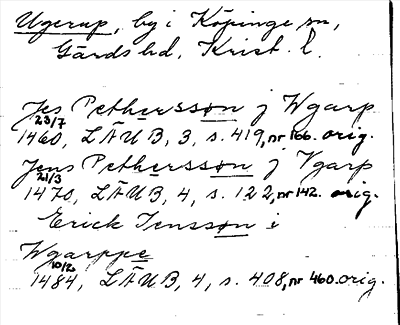 Ugerup, by i Köpinge sn,
Gärds hd, Krist. l.
Jes Pethersson j Wgarp
23/7
1460, LÄUB, 3, s. 419, nr 166. orig.
Jens Pethersson j Vgarp
21/3
1470, LÄUB, 4, s. 122, nr 142. orig.
Erick Jensson i
Wgarppe
10/2
1484, LÄUB, 4, s. 408, nr 460. orig.